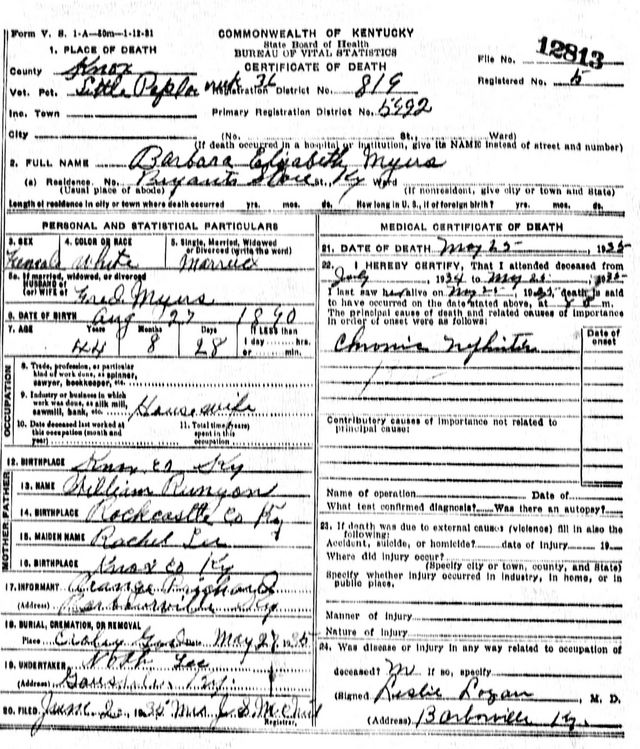 Form V. S. 1-A—50m—1-12-31
COMMONWEALTH OF KENTUCKY
State Board of Health
BUREAU OF VITAL STATISTICS
CERTIFICATE OF DEATH
File No. 12813
Registered No. 5
1. PLACE OF DEATH
County Knox
Vot. Pct. Little Poplar 36 Registration District No. 819
Inc. Town Primary Registration District No. 5992
City (No. St., Ward)
(If death occurred in a hospital or institution, give its NAME instead of street and number)
2. FULL NAME Barbara Elizabeth Myers
(a) Residence. No. Bryants Store St., Ky Ward
(Usual place of abode) (If nonresident, give city or town and State)
Length of residence in city or town where death occurred yrs. mos. ds. How long in U. S., if of foreign birth? yrs. mos. ds.
PERSONAL AND STATISTICAL PARTICULARS
3. SEX Female
4. COLOR OR RACE White
5. Single, Married, Widowed or Divorced (write the word) Married
5a. If married, widowed, or divorced
HUSBAND of
(or) WIFE of Fred Myers
6. DATE OF BIRTH Aug 27 1890
7. AGE Years Months Days If LESS than
44 8 28 1 day hrs.
or min.
OCCUPATION
8. Trade, profession, or particular
kind of work done, as spinner,
sawyer, bookkeeper, etc.
9. Industry or business in which
work was done, as silk mill,
sawmill, bank, etc. House wife
10. Date deceased last worked at
this occupation (month and
year)
11. Total time (years)
spent in this
occupation
12. BIRTHPLACE Knox Co Ky
FATHER
13. NAME William Runyon
14. BIRTHPLACE Rockcastle Co Ky
MOTHER
15. MAIDEN NAME Rachel Lee
16. BIRTHPLACE Knox Co Ky
17. INFORMANT
(Address) Barbourville Ky
18. BURIAL, CREMATION, OR REMOVAL
Place May 27, 1935
19. UNDERTAKER
(Address) Ky.
20. FILED June 2, 1935 Mrs J. S.
Registrar.
MEDICAL CERTIFICATE OF DEATH
21. DATE OF DEATH May 25, 1935
22. I HEREBY CERTIFY, That I attended deceased from
July, 1934 to May 25, 1935
I last saw her alive on May 25, 1935, death is said
to have occurred on the date stated above, at
The principal cause of death and related causes of importance
in order of onset were as follows:
Date of
onset
Chronic Nephritis
Contributory causes of importance not related to
principal cause:
Name of operation Date of
What test confirmed diagnosis? Was there an autopsy?
23. If death was due to external causes (violence) fill in also the
following:
Accident, suicide, or homicide? date of injury 19
Where did injury occur?
(Specify city or town, county, and State)
Specify whether injury occurred in industry, in home, or in
public place.
Manner of injury
Nature of injury
24. Was disease or injury in any way related to occupation of
deceased? If so, specify
(Signed Leslie Logan, M. D.
(Address) Barbourville Ky.